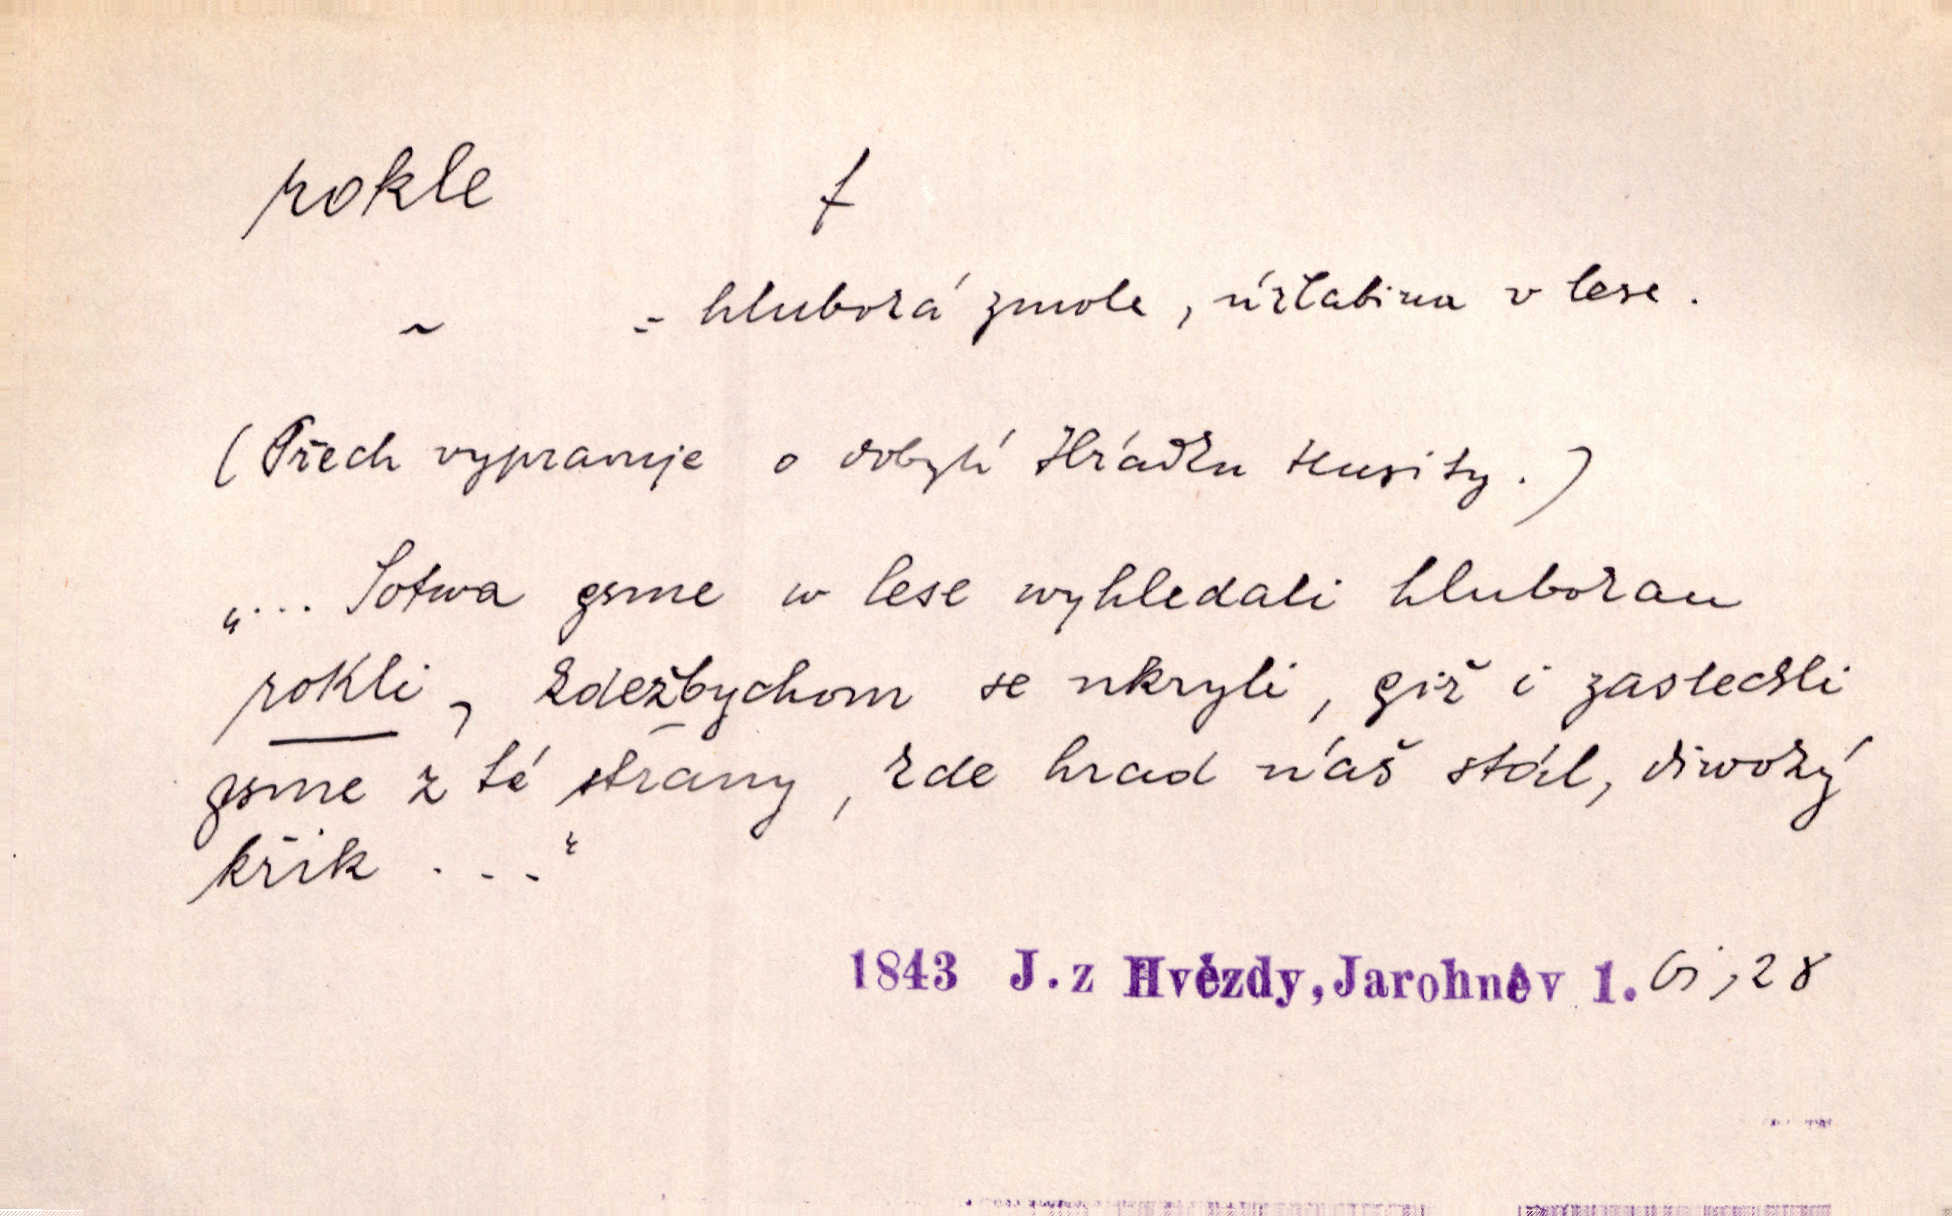 rokle f
~ = hluboká zmole, úžlabina v lese.
(Přech vypravuje o dobytí Hrádku Husity.)
„... Sotwa gsme w lese wyhledali hlubokau
rokli, kdežbychom se ukryli, giž i zaslechli
gsme z té strany, kde hrad náš stál, diwoký
křik ...“
1843 J. z Hvězdy, Jarohněv 1. 28